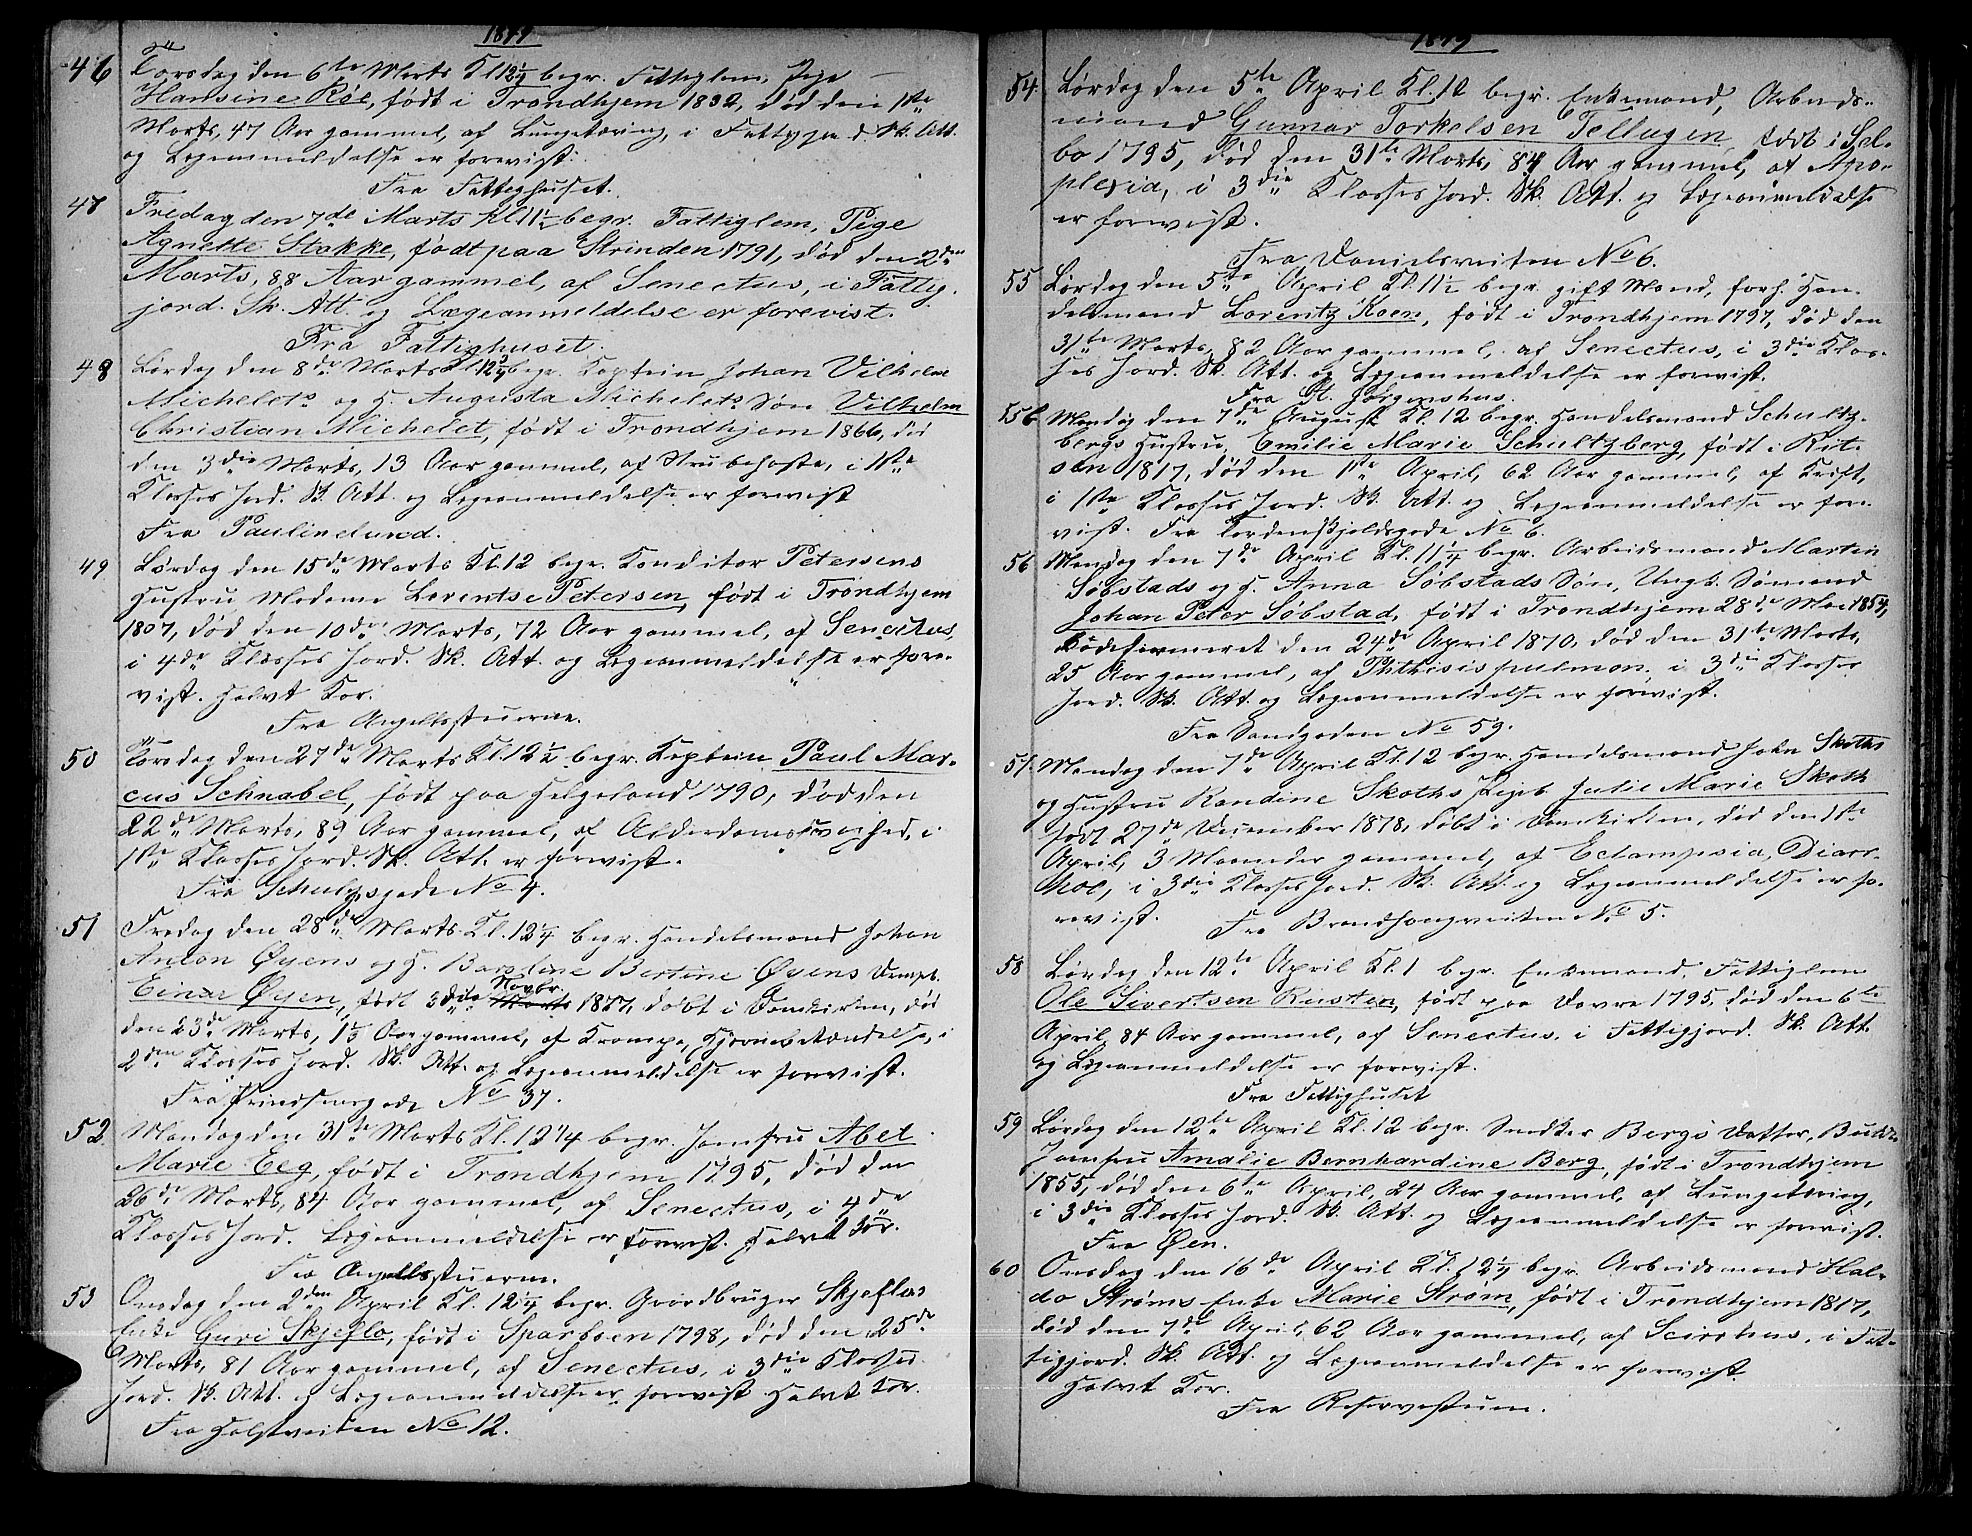 1879
46 Torsdag den 6te Marts Kl 12¼ begr. Fattiglem, Pige
Hansine Röe, født i Trondhjem 1832, død den 1ste
Marts, 47 Aar gammel, af Lungetæring, i Fattigjord. Sk. Att.
og Lægeanmeldelse er forevist.
Fra Fattighuset.
47 Fredag den 7de Marts Kl 11½ begr. Fattiglem, Pige
Agnette Stokke, født paa Strinden 1791, død den 2den
Marts, 88 Aar gammel, af Senectus, i Fattig-
jord. Sk. Att. og Lægeanmeldelse er forevist.
Fra Fattighuset.
48 Lördag den 8de Marts Kl 12¾ begr. Captein Johan Vilhelm
Michelets og H. Augusta Michelets Søn Vilhelm
Christian Michelet, født i Trondhjem 1866, død
den 3die Marts, 13 Aar gammel, af Strubehoste, i 1ste
Klasses Jord. Sk. Att. og Lægeanmeldelse er forevist
Fra Paulinelund.
49 Lørdag den 15de Marts Kl. 12 begr. Konditor Petersens
Hustru Madame Lorentse Petersen, født i Trondhjem
1807, død den 10de Marts, 72 Aar gammel, af Senectus,
i 4de Klasses Jord. Sk. Att. og Lægeanmeldelse er fore-
vist. Halvt Kor.
Fra Angellsstuerne.
50 Torsdag den 27de Marts Kl. 12½ begr. Captein Paul Mar-
cus Schnabel, født paa Helgeland 1790, død den
22de Marts, 89 Aar gammel, af Alderdomssvaghed, i
1ste Klasses Jord. Sk. Att. er forevist.
Fra Schultzsgade No 4.
51 Fredag den 28de Marts Kl. 12¼ begr. Handelsmand Johan
Anton Øyens og H. Bertine Øyens
Einar Øyen, født 3die Marts Novbr. 1877, døbt i Domkirken, død
den 23de Marts, 1⅓ Aar gammel, af Krampe, Hjernebetændelse, i
2den Klasses Jord. Sk. Att. og Lægeanmeldelse er forevist.
Fra Prindsensgade No 37.
52 Mandag den 31te Marts Kl. 12¼ begr. Jomfru Abel
Marie Eeg, født i Trondhjem 1795, død den
26de Marts, 84 Aar gammel, af Senectus, i 4de
Klasses Jord. Lægeanmeldelse er forevist. Halvt Kor.
Fra Angellsstuerne.
53 Onsdag den 2den April Kl. 12¼ begr. Gaardbruger Skjeflos
Enke Guri Skjeflo, født i Sparbuen 1798, død den 25de
Marts, 81 Aar gammel, af Senectus, i 3die Klasses
Jord. Sk. Att. og Lægeanmeldelse er forevist Halvt Kor.
Fra Holstveiten No 12.
1879
54 Lørdag den 5te April Kl. 12 begr. Enkemand, Arbeids-
mand Gunnar Torkelsen Tellugen, født i Sel-
bo 1795, død den 31te Marts, 84 Aar gammel, af Apo-
plexia, i 3die Klasses Jord. Sk. Att. og Lægeanmeldelse
er forevist.
Fra Danielsveiten No 6.
55 Lørdag den 5te April Kl. 11½ begr. gift Mand, forh. Han-
delsmand Lorentz Koen, født i Trondhjem 1797, død den
31te Marts, 82 Aar gammel, af Senectus, i 3die Klas-
ses Jord. Sk. Att. og Lægeanmeldelse er forevist.
Fra St. Jørgenshus.
55b Mandag den 7de August Kl. 12 begr. Handelsmand Schultz-
bergs Hustru, Emilie Marie Schultzberg, født i Rit-
sen 1817, død den 1ste April, 62 Aar gammel, af Kræft,
i 1ste Klasses Jord. Sk. Att. og Lægeanmeldelse er fore-
vist. Fra Tordenskjoldsgade No 6.
56 Mandag den 7de April Kl. 11¼ begr. Arbeidsmand Martin
Søbstads og H. Anna Søbstads Søn, Ungk. Sømand
Johan Peter Søbstad, født i Trondhjem 28de Mai 1854,
den 24de April 1870, død den 31te Marts,
25 Aar gammel, af Phthisis pulmon, i 3die Klasses
Jord. Sk. Att. og Lægeanmeldelse er forevist.
Fra Sandgaden No 59.
57. Mandag den 7de April Kl. 12 begr. Handelsmand John Skoths
og Hustru Randine Skoths Pigeb. Julie Marie Skoth
født 27de December 1878, døbt i Domkirken, død den 1ste
April, 3 Maaneder gammel, af Eclampsia, Diarr-
hoe, i 3die Klasses Jord. Sk. Att. og Lægeanmeldelse er fo-
revist. Fra Brandhaugveiten No 5.
58 Lørdag den 12te April Kl. 1 begr. Enkemand, Fattiglem
Ole Sivertsen Rusten, født paa Dovre 1795, død den 6te
April, 84 Aar gammel, af Senectus, i Fattigjord. Sk. Att.
og Lægeanmeldelse er forevist.
Fra Fattighuset
59 Lørdag den 12te April Kl. 12 begr. Snedker Bergs Datter,
Jomfru Amalie Bernhardine Berg, født i Trondhjem
1855, død den 6te April, 24 Aar gammel, af Lungetæring,
i 3die Klasses Jord. Sk. Att. og Lægeanmeldelse er forevist.
Fra Øen.
60 Onsdag den 16de April Kl. 12¼ begr. Arbeidsmand Hal-
do Strøms Enke Marie Strøm, født i Trondhjem 1817,
død den 7de April, 62 Aar gammel, af Scirrhus, i Fat-
tigjord. Sk. Att. og Lægeanmeldelse er forevist.
Halvt Kor.
Fra Reservestuen.